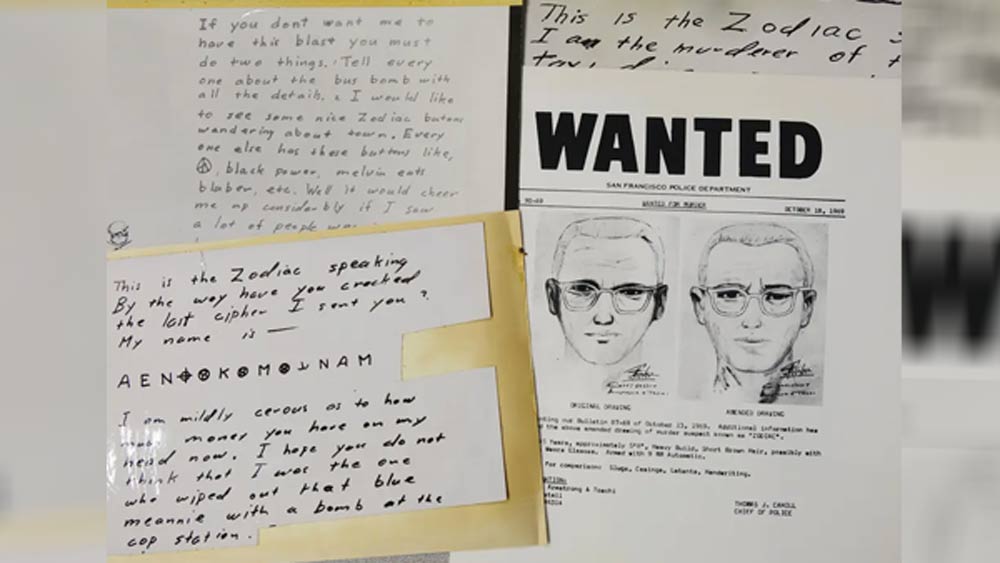 If you dont want me to
have this blast you must
do two things. Tell every
one about the bus bomb with
all the details. I would like
to see some nice Zodiac butons
wandering about town. Every
one else has these buttons like,
black power, melvin eats
bluber, etc. Well it would cheer
me up considerbly if I saw
a lot of people
This is the Zodiac speaking
By the way have you cracked
the last cipher I sent you?
My name is —
A E N ⌖ ⊗ K ⊗ M ⊗ ⅃ N A M
I am mildly cerous as to how
much money you have on my
head now. I hope you do not
think that I was the one
who wiped out that blue
meannie with a bomb at the
cop station.
This is the Zodiac
I am the murderer of
WANTED
SAN FRANCISCO POLICE DEPARTMENT
90-69 WANTED FOR MURDER OCTOBER 18, 1969
ORIGINAL DRAWING AMENDED DRAWING
our Bulletin 87-69 of October 13, 1969. Additional information has
the above amended drawing of murder suspect known as "ZODIAC".
Years, approximately 5'8", Heavy Build, Short Brown Hair, possibly with
Glasses. Armed with 9 MM Automatic.
For comparison: Slugs, Casings, Latents, Handwriting.
Armstrong & Toschi
THOMAS J. CAHILL
CHIEF OF POLICE